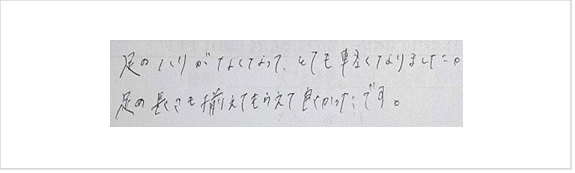 足のハリがなくなって、とても軽くなりました。
足の長さも揃えてもらえて良かったです。